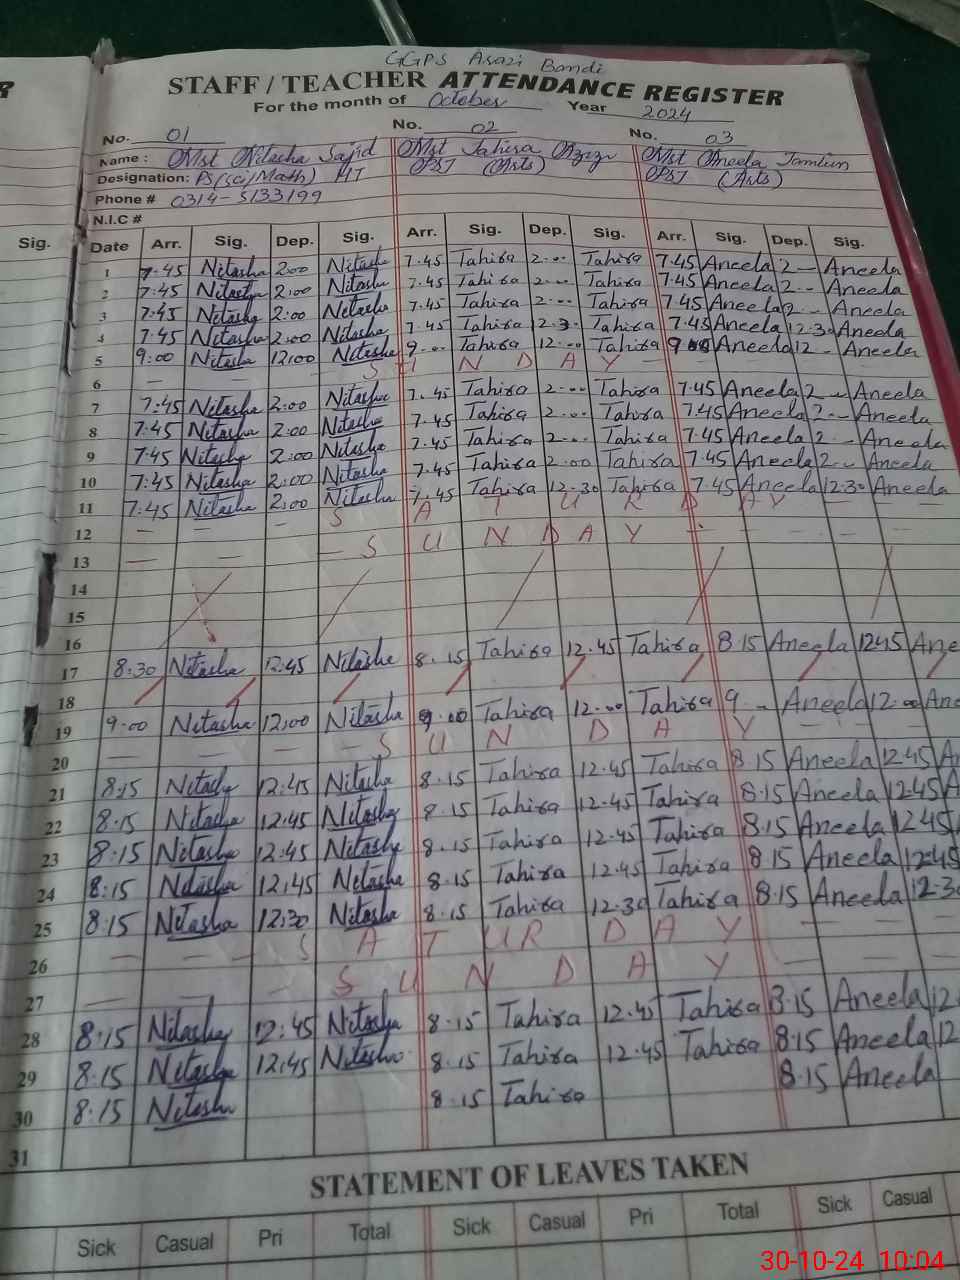 GGPS Asazi Bandi
STAFF / TEACHER ATTENDANCE REGISTER
For the month of October Year 2024
No. 01 No. 02 No. 03
Name: Mst Nitasha Sajid Mst Tahira Mst Aneela
Designation: PS(Sci/Math) HT PST (Arts) PST (Arts)
Phone # 0314-5133199
N.I.C #
Sig. Date Arr. Sig. Dep. Sig. Arr. Sig. Dep. Sig. Arr. Sig. Dep. Sig.
1 7.45 Nitasha 2:00 Nitasha 7.45 Tahira 2-.. Tahira 7.45 Aneela 2-- Aneela
2 7:45 Nitasha 2:00 Nitasha 7.45 Tahira 2-.. Tahira 7.45 Aneela 2-- Aneela
3 7:45 Nitasha 2:00 Nitasha 7.45 Tahira 2-.. Tahira 7.45 Aneela 2-- Aneela
4 7:45 Nitasha 2:00 Nitasha 7.45 Tahira Tahira 7.45 Aneela 12.30 Aneela
5 9:00 Nitasha 12:00 Nitasha 9-.. Tahira 12-.. Tahira 9 Aneela 12- Aneela
6 SUNDAY
7 7:45 Nitasha 2:00 Nitasha 7.45 Tahira 2-.. Tahira 7.45 Aneela 2-- Aneela
8 7:45 Nitasha 2:00 Nitasha 7.45 Tahira 2-.. Tahira 7.45 Aneela 2-- Aneela
9 7:45 Nitasha 2:00 Nitasha 7.45 Tahira 2-.. Tahira 7.45 Aneela 2- Aneela
10 7:45 Nitasha 2:00 Nitasha 7.45 Tahira 2-00 Tahira 7.45 Aneela 2-- Aneela
11 7:45 Nitasha 2:00 Nitasha 7.45 Tahira 12-30 Tahira 7.45 Aneela 12.30 Aneela
12 SATURDAY
13 SUNDAY
14
15
16
17 8.30 Nitasha 12:45 Nitasha 8.15 Tahira 12.45 Tahira 8.15 Aneela 12.45 Ane
18
19 9:00 Nitasha 12:00 Nitasha 9.00 Tahira 12-.. Tahira 9-- Aneela 12-00 Ane
20 SUNDAY
21 8:15 Nitasha 12:45 Nitasha 8.15 Tahira 12.45 Tahira 8.15 Aneela 12.45 An
22 8:15 Nitasha 12:45 Nitasha 8.15 Tahira 12.45 Tahira 8.15 Aneela 12.45 A
23 8:15 Nitasha 12:45 Nitasha 8.15 Tahira 12.45 Tahira 8.15 Aneela 12.45
24 8:15 Nitasha 12:45 Nitasha 8.15 Tahira 12.45 Tahira 8.15 Aneela 12.45
25 8:15 Nitasha 12:30 Nitasha 8.15 Tahira 12.30 Tahira 8.15 Aneela 12.30
26 SATURDAY
27 SUNDAY
28 8:15 Nitasha 12:45 Nitasha 8.15 Tahira 12.45 Tahira 8.15 Aneela 12
29 8:15 Nitasha 12:45 Nitasha 8.15 Tahira 12.45 Tahira 8.15 Aneela 12
30 8:15 Nitasha 8.15 Tahira 8.15 Aneela
31
STATEMENT OF LEAVES TAKEN
Sick Casual Pri Total Sick Casual Pri Total Sick Casual
30-10-24 10:04